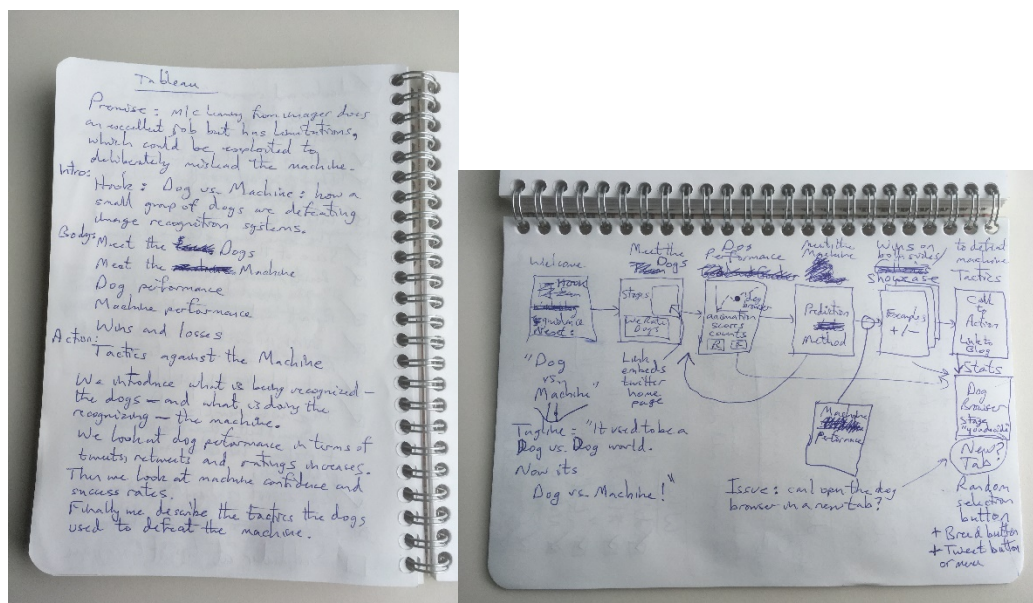 Tableau
Premise: M/c learning from images does
an excellent job but has limitations,
which could be exploited to
deliberately mislead the machine.
Intro:
Hook: Dog vs. Machine: how a
small group of dogs are defeating
image recognition systems.
Body: Meet the Dogs
Meet the Machine
Dog performance
Machine performance
Wins and losses
Action:
Tactics against the Machine
We introduce what is being recognized –
the dogs – and what is doing the
recognizing – the machine.
We look at dog performance in terms of
tweets, retweets and ratings increases.
Then we look at machine confidence and
success rates.
Finally we describe the tactics the dogs
used to defeat the machine.
Welcome
Hook
"Dog
vs.
Machine"
Tagline: "It used to be a
Dog vs. Dog world.
Now its
Dog vs. Machine!"
Meet the
Dogs
Stops
We Rate
Dogs
Link
embeds
twitter
home
page
Dog
Performance
dog
browser
animation
scores
counts
Meet the
Machine
Prediction
Method
Machine
Performance
Wins on
both sides
Showcase
Examples
+/-
to defeat
machine
Tactics
Call
to
Action
Link to
Blog
Stats
Dog
Browser
Stage
New?
Tab!
Issue: can I open the dog
browser in a new tab?
Random
selection
button
+ Breed button
+ Tweet button
or menu